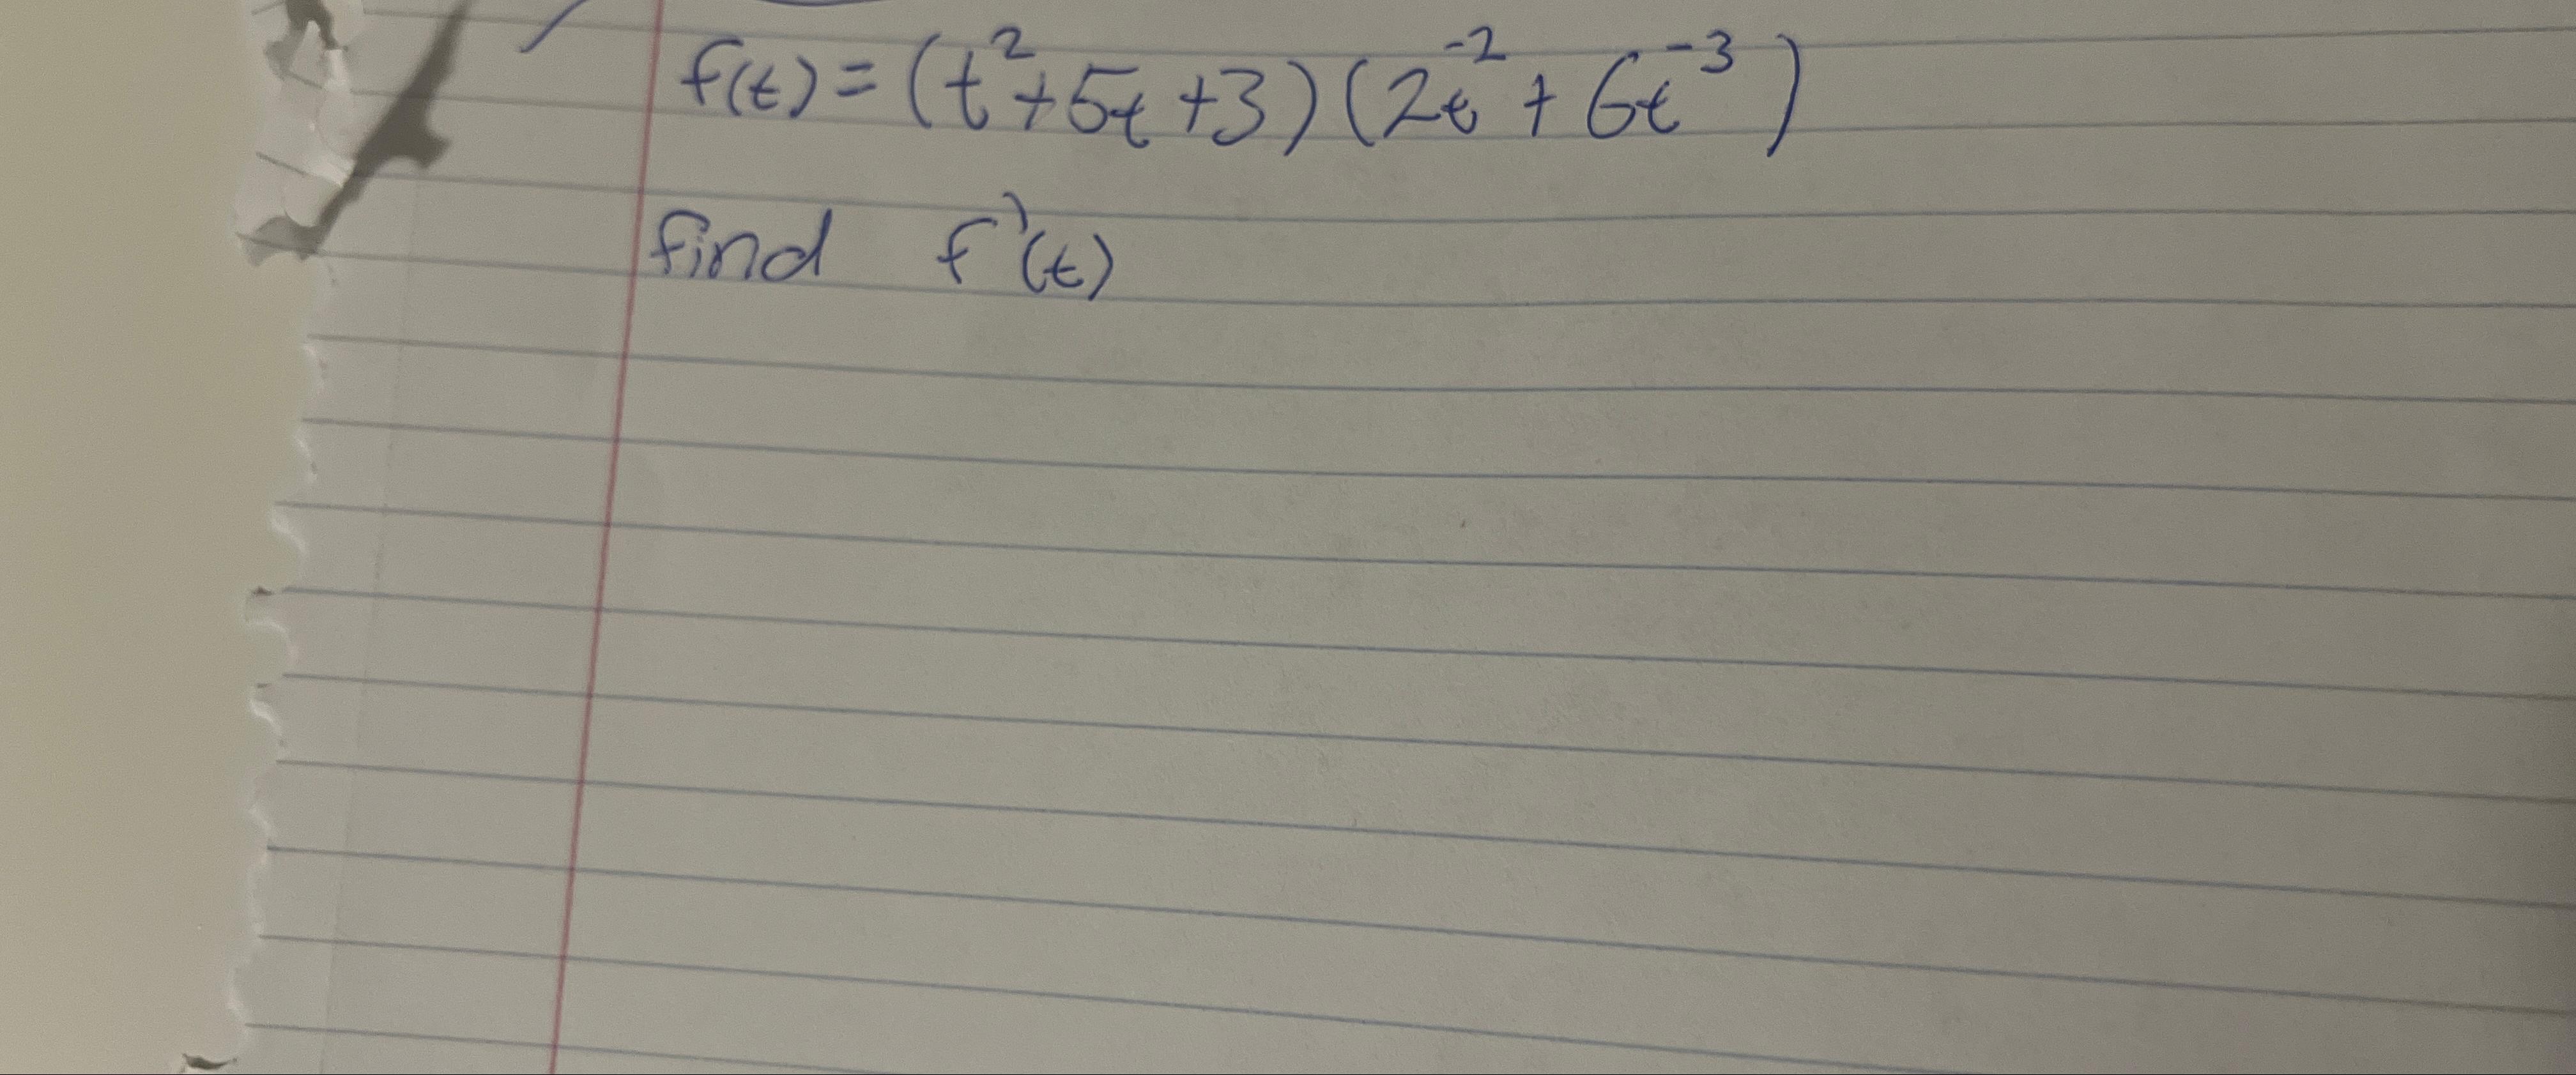 f(t) = (t² + 5t + 3)(2t⁻² + 6t⁻³)
find f'(t)